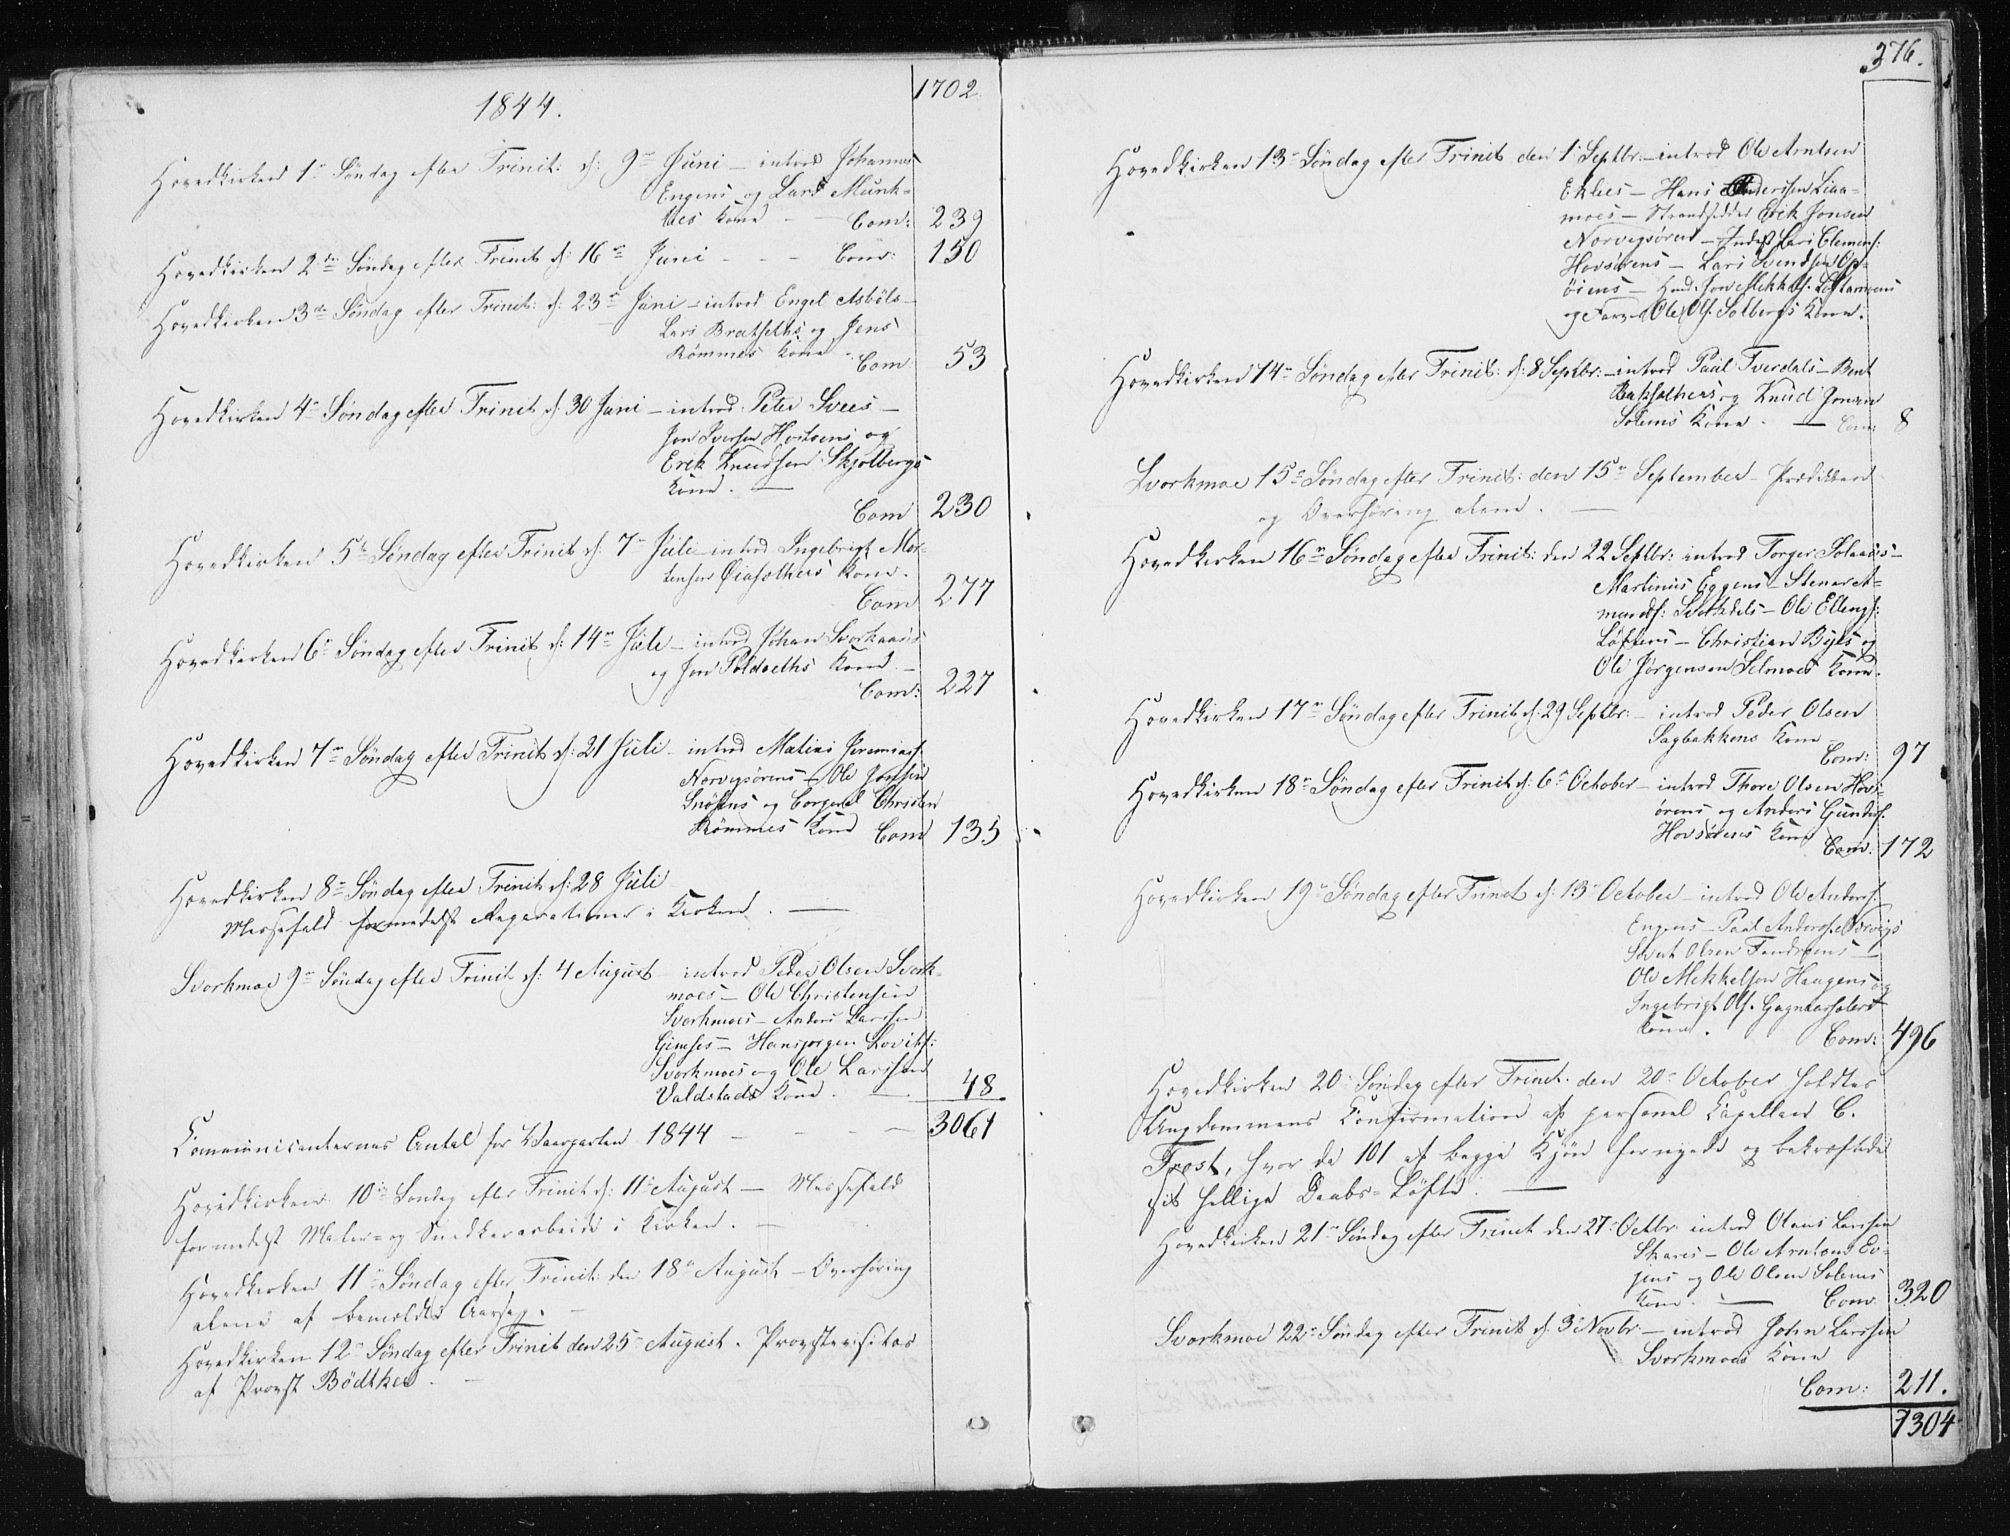 1844.
1702.
Hovedkirken 1ste Søndag efter Trinit: d: 9de Juni – introd Johannes
Engens og Lars Munk-
Kone – Com: 239
Hovedkirken 2den Søndag efter Trinit d: 16de Juni - - - Com: 150
Hovedkirken 3die Søndag efter Trinit: d: 23de Juni – introd Engel Asböls –
Lars Bratseths og Jens
Römmes Kone. Com 53
Hovedkirken 4de Søndag efter Trinit d: 30 Juni – introd Peter Svees –
Jon Iversen Hostons og
Erik Knudsen Skjølbergs
Kone. —
Com 230
Hovedkirken 5te Søndag efter Trinit d: 7de Juli – introd Ingebrigt Mor-
tensen Øiasæthers Kone.
Com 277
Hovedkirken 6te Søndag efter Trinit d: 14de Juli – introd Johan Svorkaaes
og Jon Solboeths Kone –
Com: 227
Hovedkirken 7de Søndag efter Trinit d: 21 Juli – introd Jeremias:
Norvigsørens – Ole Jonsen
og Corporal Christen
Römmes Kone Com 135
Hovedkirken 8de Søndag efter Trinit d: 28 Juli
Messefald formedelst Reperationer i Kirken. —
Svorkmoe 9de Søndag efter Trinit d: 4 August – introd Peder Olsen Svork-
moes – Ole Christensen
Svorkmoes – Anders Larssen
Gimses – Hansjørgen
Svorkmoes og Ole Larssen
Valdstads Kone. — 48
Communicanternes Antal for Vaarparten 1844 – – – – 3061
Hovedkirken 10de Søndag efter Trinit d: 11te August – Messefald
formedelst Maler- og Snedkerarbeide i Kirken. —
Hovedkirken 11te Søndag efter Trinit: den 18de August – Overhøring
alene af bemeldte Aarsag. –
Hovedkirken 12te Søndag efter Trinit den 25de August. Provstevisitas
af Provst Bödtker. —
376.
Hovedkirken 13de Søndag efter Trinit den 1 Septbr: – introd Ole Arntsen
Eklies – Hans Anderssen Liaa-
moes – Strandsidder Erik Jonsen
Norvigsøren – Inds: Lars Clemens:
Hovsørens – Lars Svendsen Op-
øiens – Husm. Jon
og Ole Ols: Solbergs Kone.
Hovedkirken 14de Søndag efter Trinit: d: 8 Septbr: – introd Paul Tverdals – Bent
og Knud Jonsen
Solems Kone. — Com: 8
Svorkmoe 15de Søndag efter Trinit: den 15de September – Prædiken
og Overhøring alene. —
Hovedkirken 16de Søndag efter Trinit: den 22 Septbr: introd Torger Solaaes –
Martinus Eggens – Stener A-
munds: Svorkdals – Ole Ellings:
Løftens – Christian Byes og
Ole Jørgensen Selmoes Kone.
Hovedkirken 17de Søndag efter Trinit d: 29 Septbr: – introd Peder Olsen
Sagbakkens Kone –
Com: 97
Hovedkirken 18de Søndag efter Trinit d: 6te October – introd Thore Olsen Hovs-
ørens og Anders Gunders:
Hovsørens Kone
Com: 172
Hovedkirken 19de Søndag efter Trinit d: 13de October – introd Ole Anders:
Engens – Paul Anders: Norvigs
Sivert Olsen
Ole Mekkelsen Haugens og
Ingebrigt Ols:
Kone. Com: 496
Hovedkirken 20de Søndag efter Trinit: den 20de October holdtes
Ungdommens Confirmation af personel Capellan C.
Frost, hvor da 101 af begge Kjøn fornyede og bekræftede
sit hellige Daabs-Løfte. —
Hovedkirken 21de Søndag efter Trinit den 27 Octbr: introd Olaus Larssen
Skares – Ole Arntsen Ev-
jens og Ole Olsen Solems
Kone. — Com 320
Svorkmoe 22de Søndag efter Trinit d: 3die Novbr – introd John Larssen
Svorkmoes Kone
Com: 211.
1304